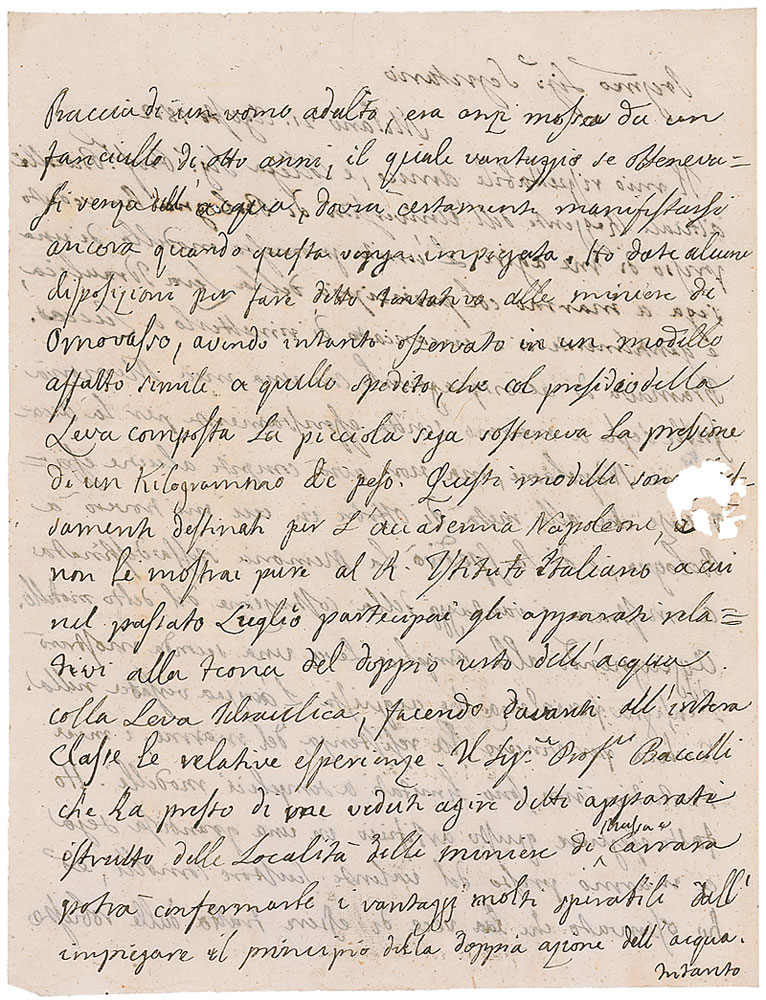 Braccia di un uomo adulto era anzi mossa da un
fanciullo di otto anni, il quale vantaggio se otteneva=
si venza dell'acqua, dovrà certamente manifestarsi
ancora quando questa venga impiegata. Ho date alcune
disposizioni per fare detto tentativo alle miniere di
Ornovasso, avendo intanto osservato in un modello
affatto simile a quello spedito, che col presidio della
Leva composta La picciola sega sosteneva La pressione
di un Kilogrammo di peso. Questi modelli sono
damente destinati per L'accademia Napoleone, e
non le mostrai pure al R. Istituto Italiano a cui
nel passato Luglio partecipai gli apparati rela=
tivi alla Teoria del doppio urto dell'acqua
colla Leva Idraulica, facendo davanti all'intera
Classe le relative esperienze. Il Sig.r Prof.r Baccelli
che ha presso di me veduti agire detti apparati
istrutto delle Località delle miniere di Massa e Carrara
potrà confermarle i vantaggi molti sperabili dall'
impiegare il principio della doppia azione dell'acqua.
Intanto